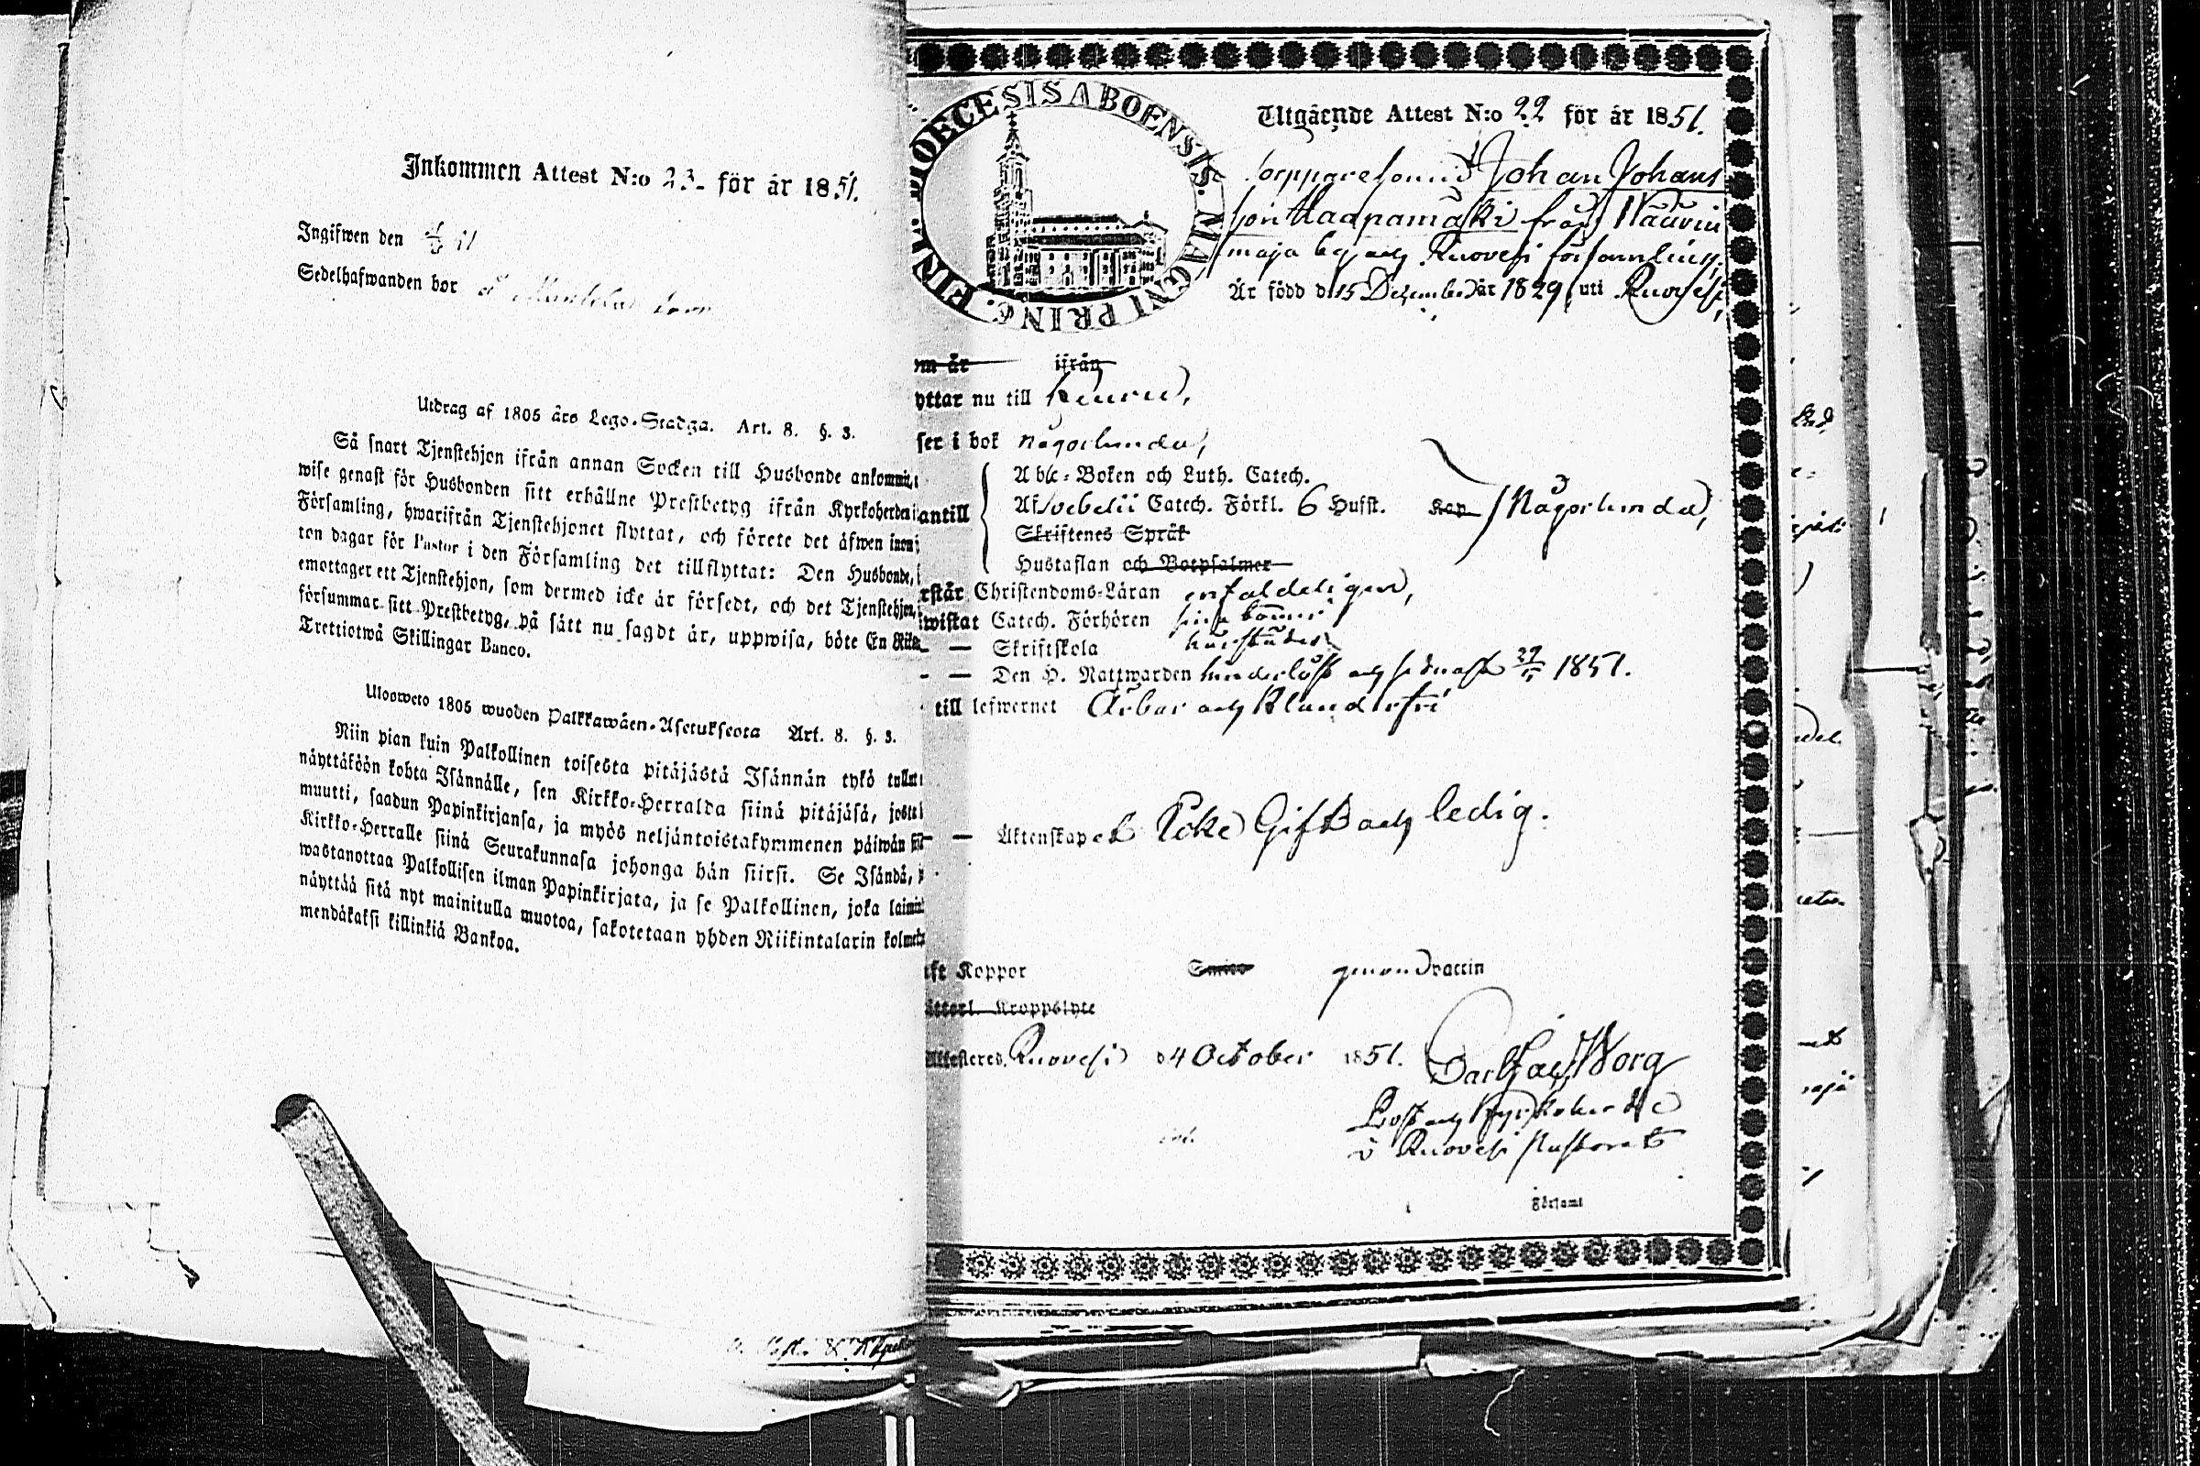 Inkommen Attest N:o 23 för år 1851.
Ingifwen den
Sedelhafwanden bor
Utdrag af 1805 års Lego-Stadga. Art. 8. §. 3.
Så snart Tjenstehjon ifrån annan Socken till Husbonde ankommit,
wise genast för Husbonden sitt erhållne Prestbetyg ifrån Kyrkoherden i
Församling, hwarifrån Tjenstehjonet flyttat, och förete det äfwen inom
ton dagar för Pastor i den Församling det tillflyttat: Den Husbonde,
emottager ett Tjenstehjon, som dermed icke är försedt, och det Tjenstehjon,
försummar sitt Prestbetyg, på sätt nu sagdt är, uppwisa, böte En Riks
Trettiotwå Skillingar Banco.
Ulosweto 1805 wuoden Palkkawäen-Asetuksesta Art. 8. §. 3.
Niin pian kuin Palkollinen toisesta pitäjästä Isännän tykö tullut
näyttäköön kohta Isännälle, sen Kirkko-Herralda siinä pitäjäsä, josta
muutti, saadun Papinkirjansa, ja myös neljäntoistakymmenen päiwän
Kirkko-Herralle siinä Seurakunnasa johonga hän siirsi. Se Isändä,
wastanottaa Palkollisen ilman Papinkirjata, ja se Palkollinen, joka laimi
näyttää sitä nyt mainitulla muotoa, sakotetaan yhden Riikintalarin kolme
mendäkaksi killinkiä Bankoa.
DIOECESIS ABOENSIS. MAGNI PRINC. FINL.
Utgående Attest N:o 22 för år 1851.
Torpparesonen Johan Johans
son Haapamäki från Wäärin
maja by och Ruovesi församling,
Är född d 15 December år 1829, uti Ruovesi,
om år ifrån
yttar nu till Keuru,
ser i bok någorlunda,
antill
Abc-Boken och Luth. Catech.
Af Svebelii Catech. Förkl. 6 Hufst. Kap Någorlunda,
Skriftenes Språk
Hustaflan och Botpsalmer
rstår Christendoms-Läran enfaldeligen,
iwistat Catech. Förhören
— — Skriftskola
— — Den H. Nattwarden och sednast 1851.
till lefwernet Ärbar och Klanderfri
— — Äktenskapet Icke Gift och ledig.
ft Koppor genom Vaccin
Kroppslyte
Attesteras, Ruovesi d 4 October 1851.
Carl Borg
Prost och Kyrkoherde
i Ruovesi Pastorat
Församl